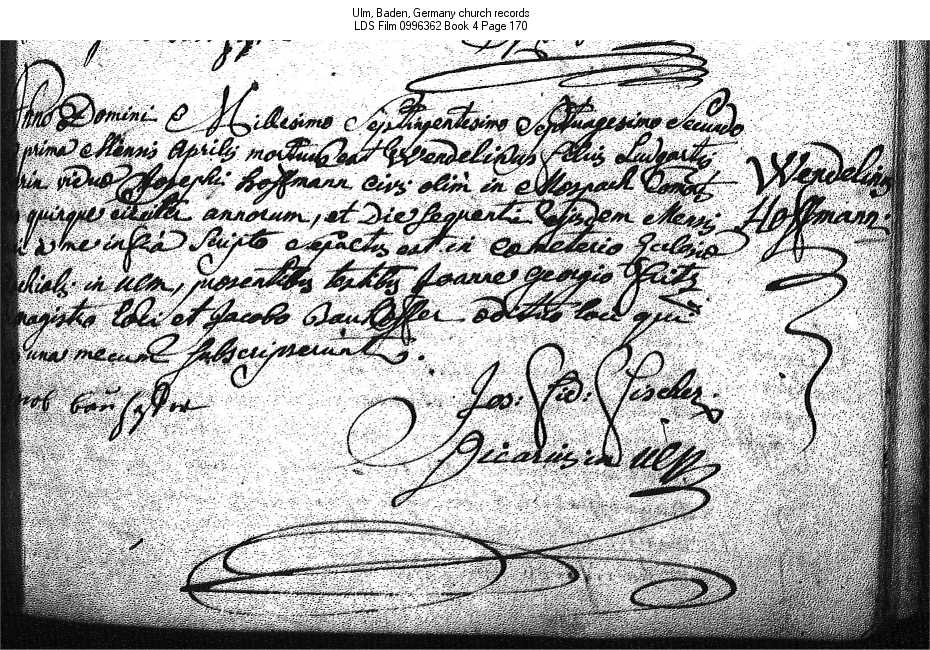 Ulm, Baden, Germany church records
LDS Film 0996362 Book 4 Page 170
Anno Domini Millesimo Septingentesimo Septuagesimo Secundo
prima Mensis Aprilis mortuus est Wendelinus filius Ludgartis
vidua Josephi Hoffmann civis olim in Mospach
quinque circiter annorum, et Die sequenti ejusdem Mensis
a me infra scripto est in coemeterio
in Ulm, praesentibus testibus Joanne Georgio
magistro loci et Jacobo loci qui
una mecum subscripserunt.
Wendelinus
Hoffmann.
Jos: Fid: Fischer
Vicarius in Ulm